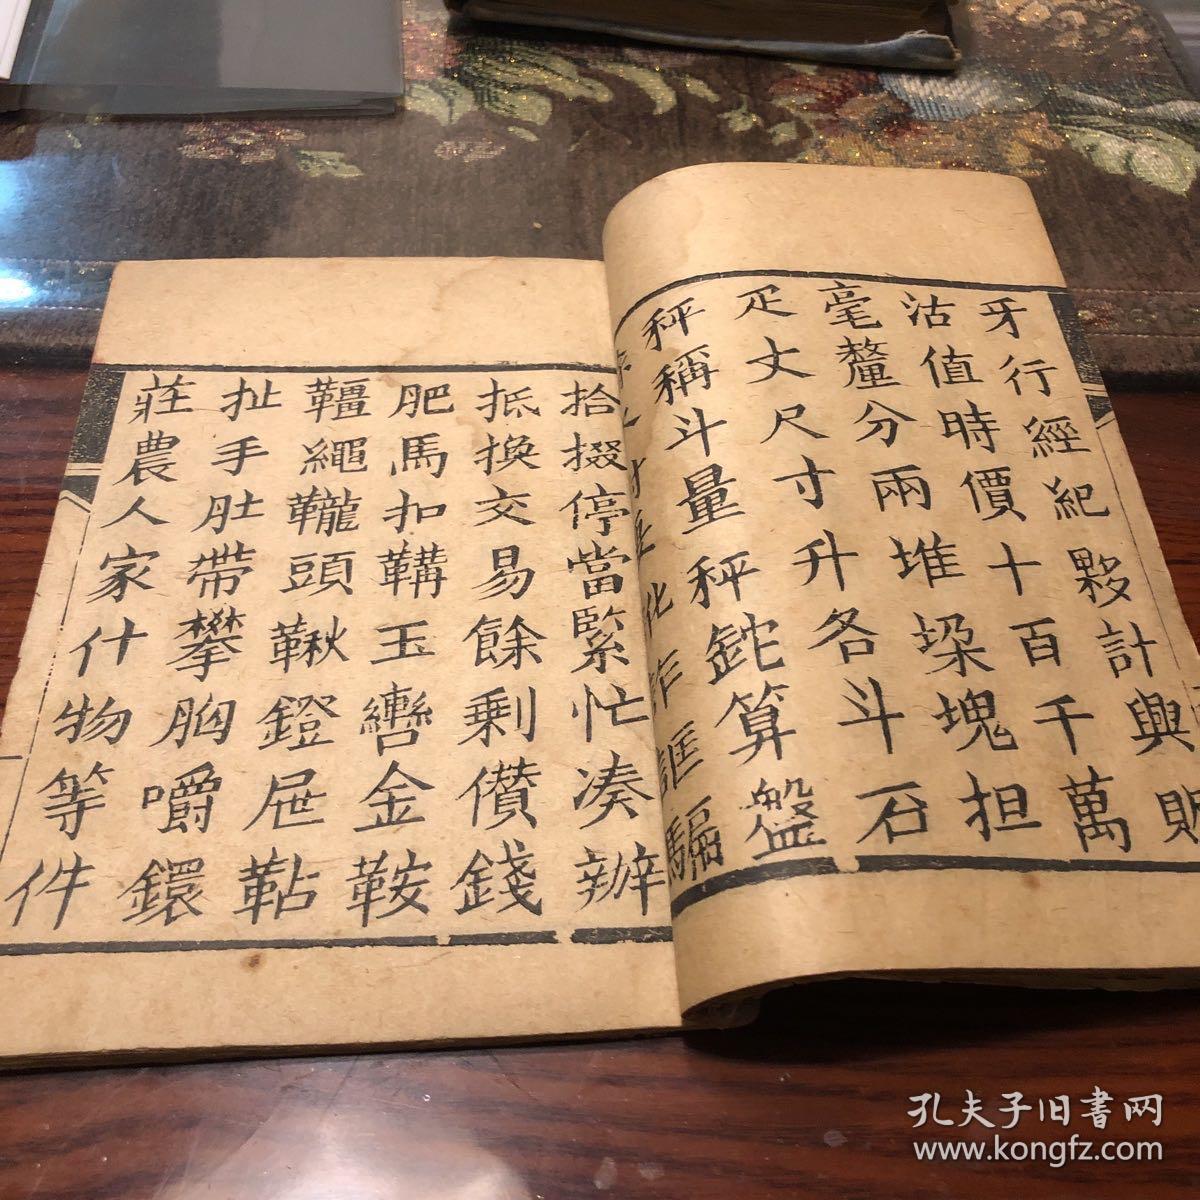 牙行經紀夥計興販
沽值時價十百千萬
毫釐分兩堆垛塊担
疋丈尺寸升各斗石
秤稱斗量秤鉈算盤
誆騙
拾掇停當緊忙凑辦
抵換交易餘剩儧錢
肥馬扣鞲玉轡金鞍
韁繩韉頭鞦鐙屉鞊
扯手肚帶攀胸嚼鐶
莊農人家什物等件
孔夫子旧書网
www.kongfz.com